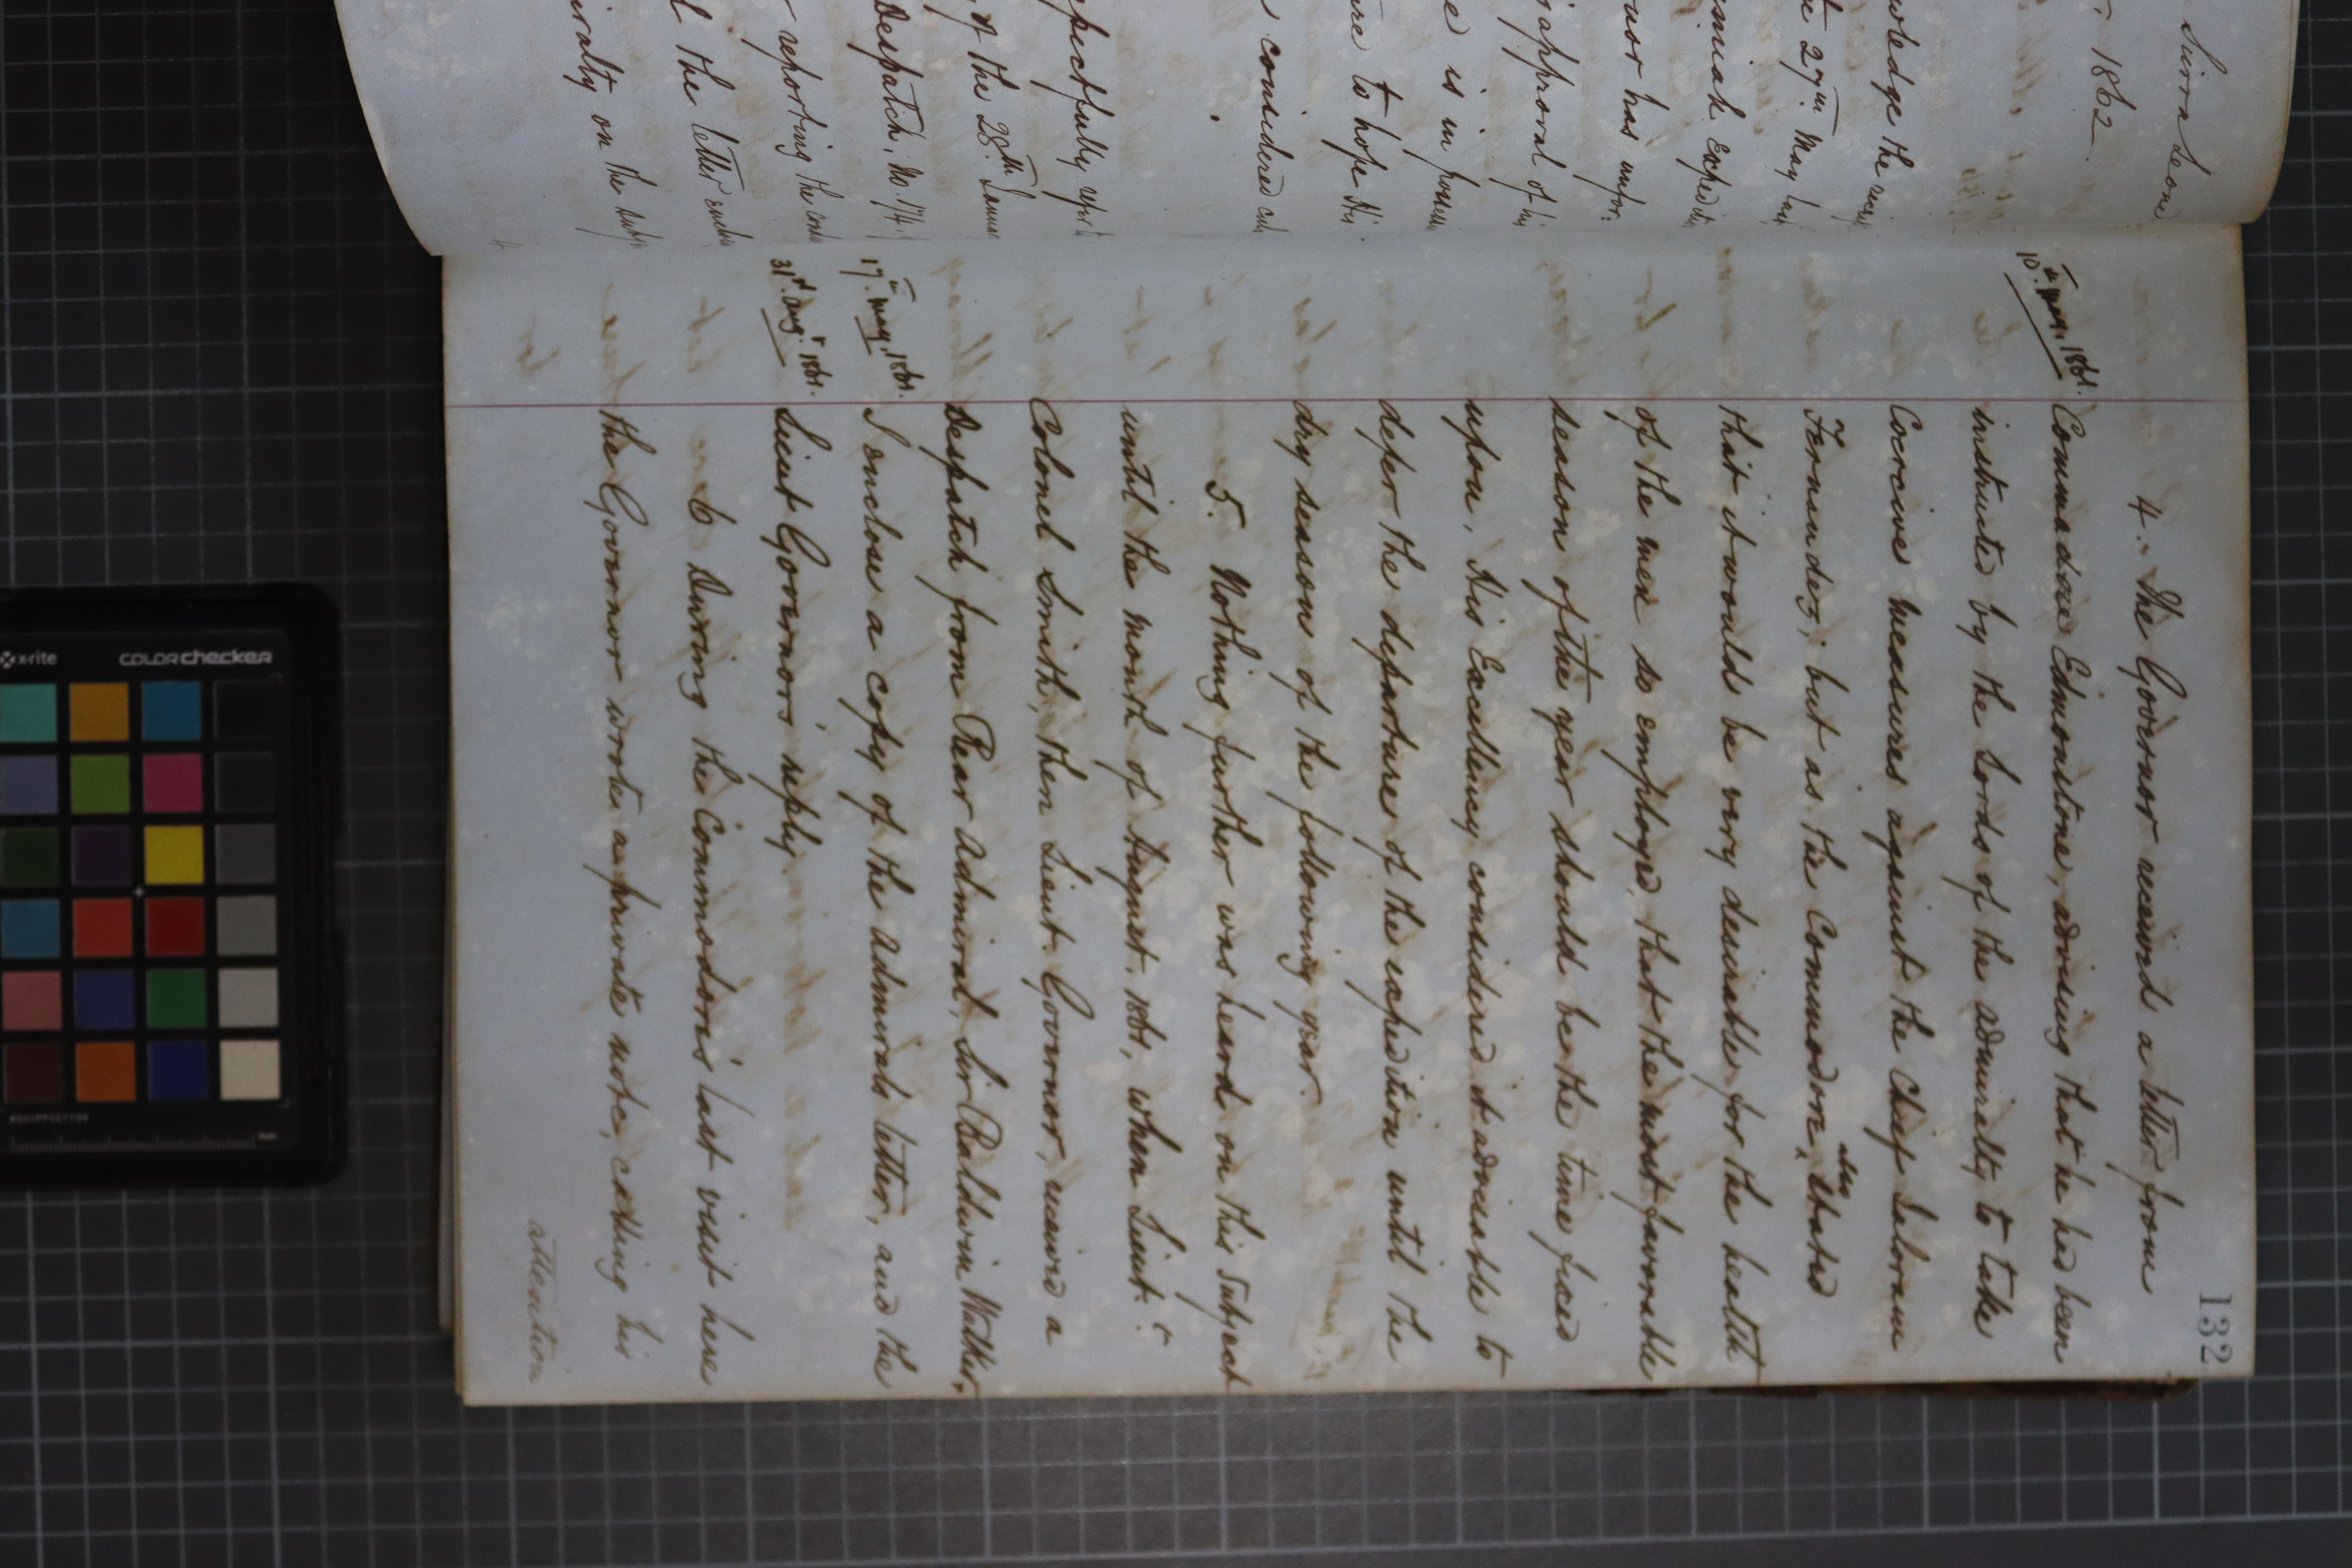 Sierra Leone
1862.
wledge the
27th May
smiah Exped
nor has
approval of
e is in
re to hope His
considered
pectfully
of the 28th
Despatch, No 174
reporting the
the letter
iralty on the
132
4. The Governor received a letter from
10th May, 1861.
Commodore Edmonstone, advising that he had been
instructed by the Lords of the Admiralty to take
Coercive measures against the Chief
Fernandez; but as the Commodore, also stated
that it would be very desirable for the health
of the men so employed, that the most favorable
season of the year should be the time fixed
upon, His Excellency considered it advisable to
defer the departure of the expedition until the
dry season of the following year.
5. Nothing further was heard on this subject
until the month of August, 1861, when Lieut:
Colonel Smith, then Lieut. Governor, received a
Despatch from Rear Admiral, Sir Baldwin Walker,
17th May, 1861.
I enclose a copy of the Admirals letter, and the
31st Augt 1861.
Lieut Governors reply.
6 During the Commodores last visit here
the Governor wrote a private note, calling his
attention
x-rite
colorchecker